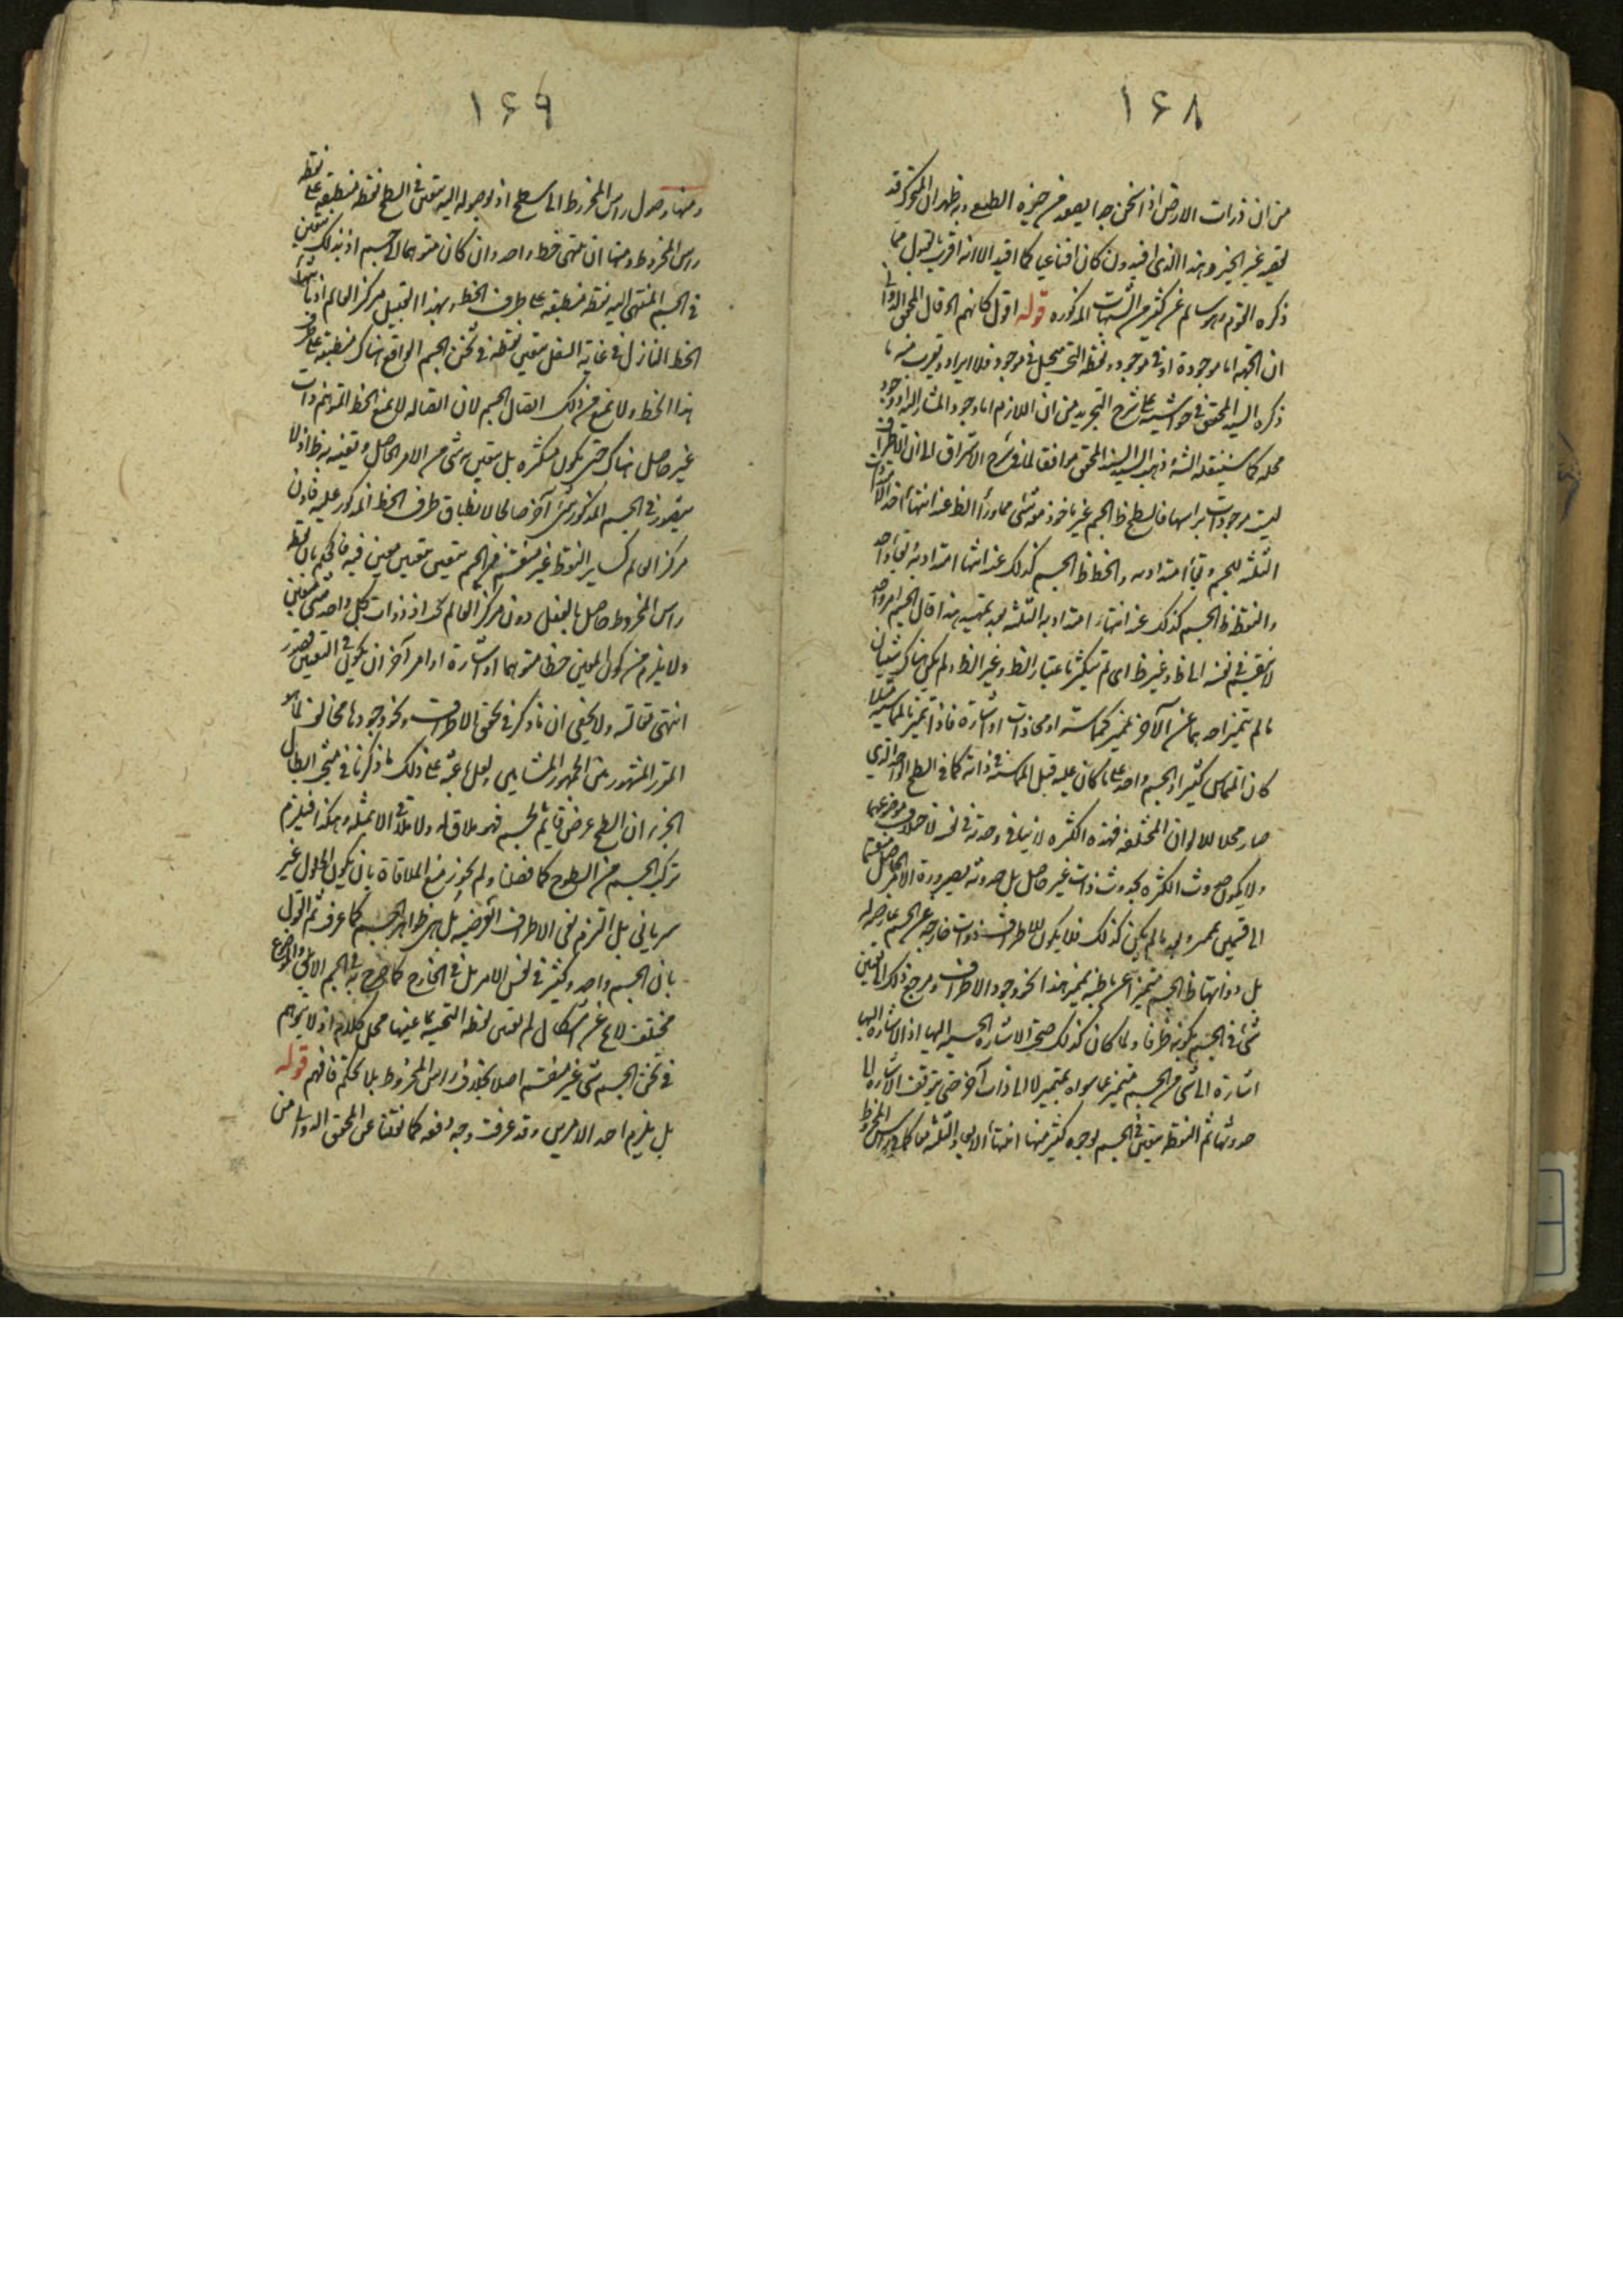 ١۶٨
من ان ذرات الارض اذا سخن جدا يصعد من حيزه الطبيعي وبه ظهر ان المتحرك قد
يقصد غير الحيز وهذا الذي افيد وان كان اقناعيا كما اقيد الا انه اقرب بالقبول مما
ذكره القوم وهو سالم عن كثير من الشبهات المذكوره قوله اقول كانهم الخ قال المحقق الدواني
ان الجهة اما موجودة او في موجود ونقطة التحت يستحيل في موجود فلا ايراد ويقرب منه ما
ذكره السيد المحقق في حواشيه على شرح التجريد من ان اللازم اما وجود المشار اليه او وجود
محله كما سينقله الش وذهب السيد السند المحقق موافقا لما في شرح الاشراق الى ان الاطراف
ليست موجودات براسها فالسطح ظ الجسم غير ماخوذ معه شئ مما وراء الظ عند انتهاء احد الامتدادات
الثلثه للجسم وبقاء امتداديه والخط ظ الجسم كذلك عند انتهاء امتداديه وبقاء واحد
والنقطة ظ الجسم كذلك عند انتهاء امتداداته الثلثه بعد تمهيد هذا قال الجسم امر واحد
لا ينقسم في نفسه الى ظ وغير ظ اي لم يتكثر باعتبار الظ وغير الظ ولم يكن هناك شيئان
ما لم يتميز احدهما عن الآخر بمميز كمماسة او محاذات او اشارة فاذا تميز بالمماسة مثلا
كان التماس كثيرا والجسم واحد على ما كان عليه قبل المماسة في ذاته كما في السطح الواحد الذي
صار محلا للالوان المختلفه فهذه الكثره لا ينافي وحدته في نفسه لاختلاف موضوعيهما
ولا يكون حدوث الكثره بحدوث ذات غير حاصل بل حدوثه بصيرورة الامر الحاصل منقسما
الى قسمين بعد ما لم يكن كذلك فلا يكون للاطراف ذوات خارجه عن الجسم عارضه له
بل ذواتها ظ الجسم متميزا عن باطنه بمميز هذا نحو وجود الاطراف ومرجع ذلك الى تعين
شئ في الجسم بكونه طرفا ولما كان كذلك صح الاشاره الحسيه اليها اذ الاشاره اليها
اشارة الى شئ من الجسم متميز عما سواه بمميز لا الى ذات آخر حتى يتوقف الاشاره الى
حدوثها ثم النقطة يتعين في الجسم بوجوه كثير منها انتهاء الابعاد الثلثه كما في راس المخروط
١۶٩
ومنها وصول راس المخروط الى سطح اذ بوصوله اليه يتعين في السطح نقطة منطبقه على نقطة
راس المخروط ومنها ان ينتهي خط واحد وان كان متوهما الى جسم اذ بذلك يتعين
في الجسم المنتهى اليه نقطة منطبقه على طرف الخط وبهذا القبيل مركز العالم اذ بانتهاء
الخط النازل في غاية السفل يتعين نقطة في ثخن الجسم الواقع هناك منطبقه على طرف
هذا الخط ولا يمنع من ذلك اتصال الجسم لان اتصاله لا يمنع الخط المتوهم ذات
غير حاصل هناك حتى يكون متكثره بل يتعين به شئ من الامر الحاصل وتعينه به ظ اذ لا
يتصور في الجسم المذكور شئ آخر صالحا لانطباق طرف الخط المذكور عليه فاذن
مركز العالم كساير النقط غير منقسم من الجسم متعين بتعين معين فيه فالحكم بان نقطة
راس المخروط حاصل بالفعل دون مركز العالم تحكم اذ ذوات كل واحد منهما متعين
ولا يلزم من كون المعين خطا متوهما او اشارة او امر آخر ان يكون في التعين قصور
انتهى مقالته ولا يخفى ان ما ذكر في تحقق الاطراف ونحو وجودها مخالف لما هو
المقرر المشهور بين الجمهور المشايين ولعل باعثه على ذلك ما ذكرنا في مبحث ابطال
الجزء ان السطح عرض قائم بالجسم فهو ملاق له ولا ملاقى الا مثله وهكذا فيلزم
تركب الجسم من السطوح كما فصلنا ولم يجوز منع الملاقاة بان يكون الحلول غير
سرياني بل التزم نفى الاطراف العرضيه بل هي ظواهر الجسم كما عرف ثم القول
بان الجسم واحد وكثير في نفس الامر بل في الخارج كما صرح به في الجسم الابلق والموضوع
مختلف لا يخ عن اشكال ثم تعين نقطة التحتيه بما عينها محل كلام اذ لا يتوهم
في ثخن الجسم شئ غير منقسم اصلا بخلاف راس المخروط بلا تحكم فافهم قوله
بل يلزم احد الامرين وقد عرفت وجه دفعه كما نقلنا عن المحقق الدواني من